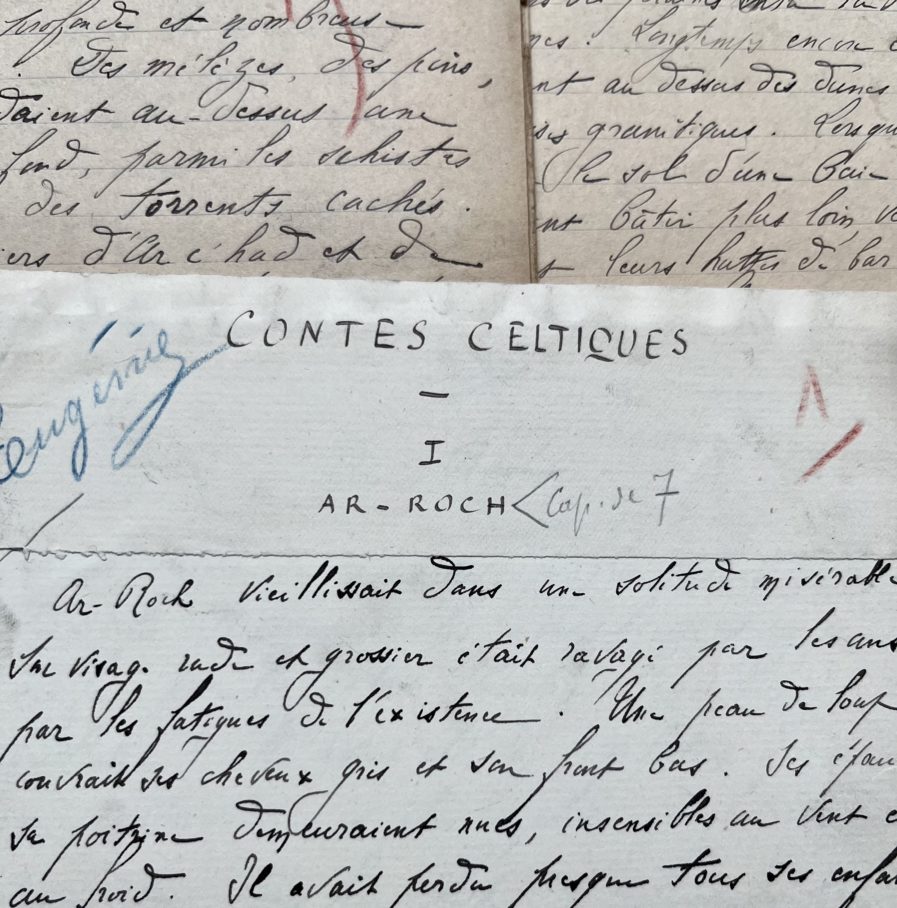 profonde et nombreuse
. Des mélèzes, des pins,
daient au-dessus une
fond, parmi les schistes
des torrents cachés.
iers d'Ar c'had et de
. Longtemps encore
nt au dessus des dunes
granitiques. Lorsqu
le sol d'une baie
nt bâtir plus loin,
leurs huttes de bar
CONTES CELTIQUES
—
I
AR-ROCH
Cap. de 7
Eugénie
Ar-Roch vieillissait dans une solitude misérable
Son visage rude et grossier était ravagé par les ans
par les fatigues de l'existence. Une peau de loup
couvrait ses cheveux gris et son front bas. Ses épau
sa poitrine demeuraient nues, insensibles au vent e
au froid. Il avait perdu presque tous ses enfan